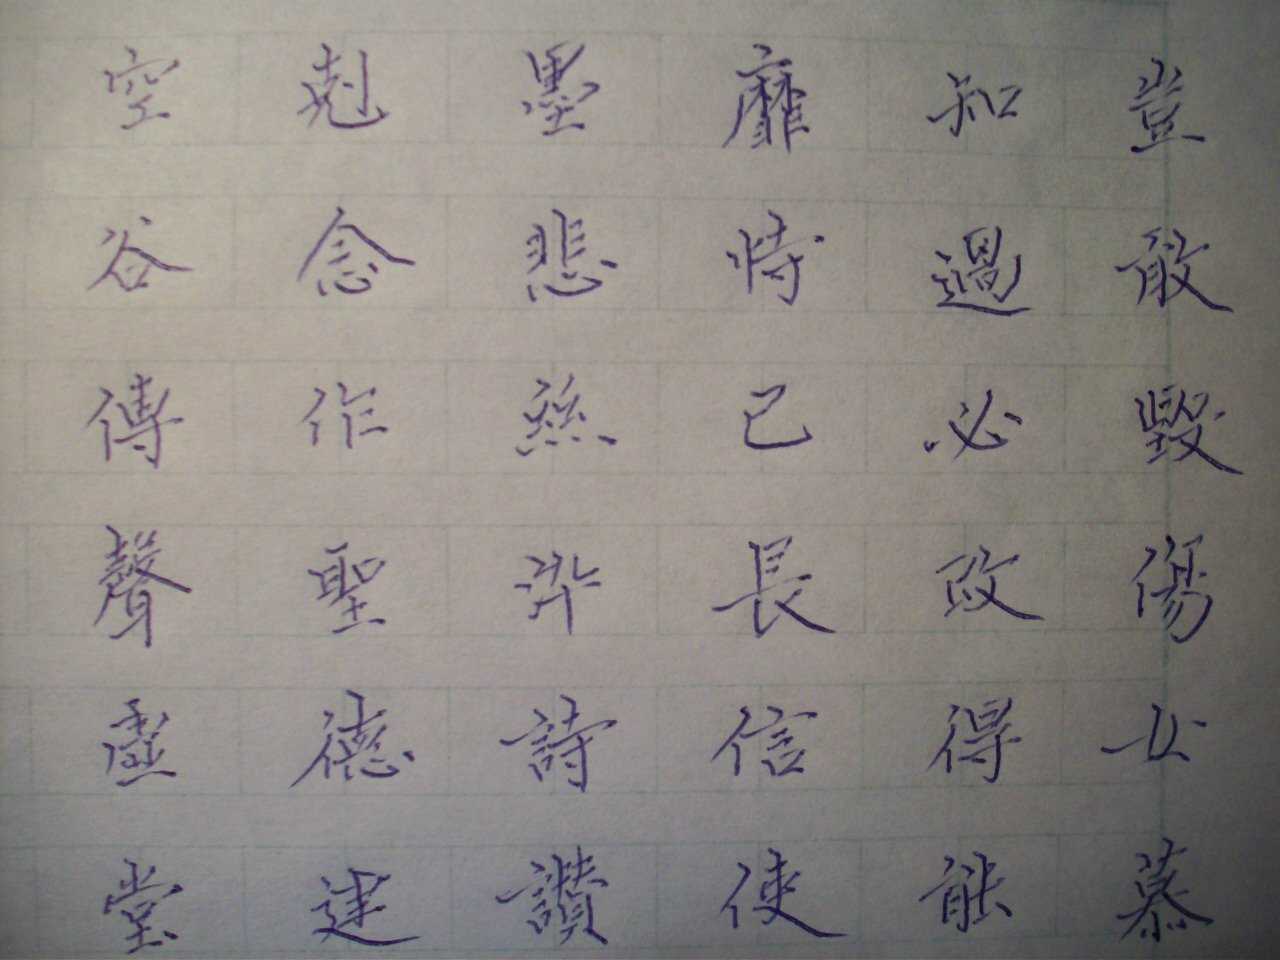 豈敢毀傷女慕
知過必改得能
靡恃己長信使
墨悲絲染詩讚
剋念作聖德建
空谷傳聲虛堂